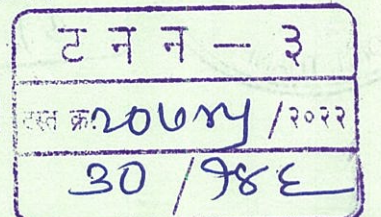 ट न न - ३
दस्त क्र. २०७४५ / २०२२
३० / १४६